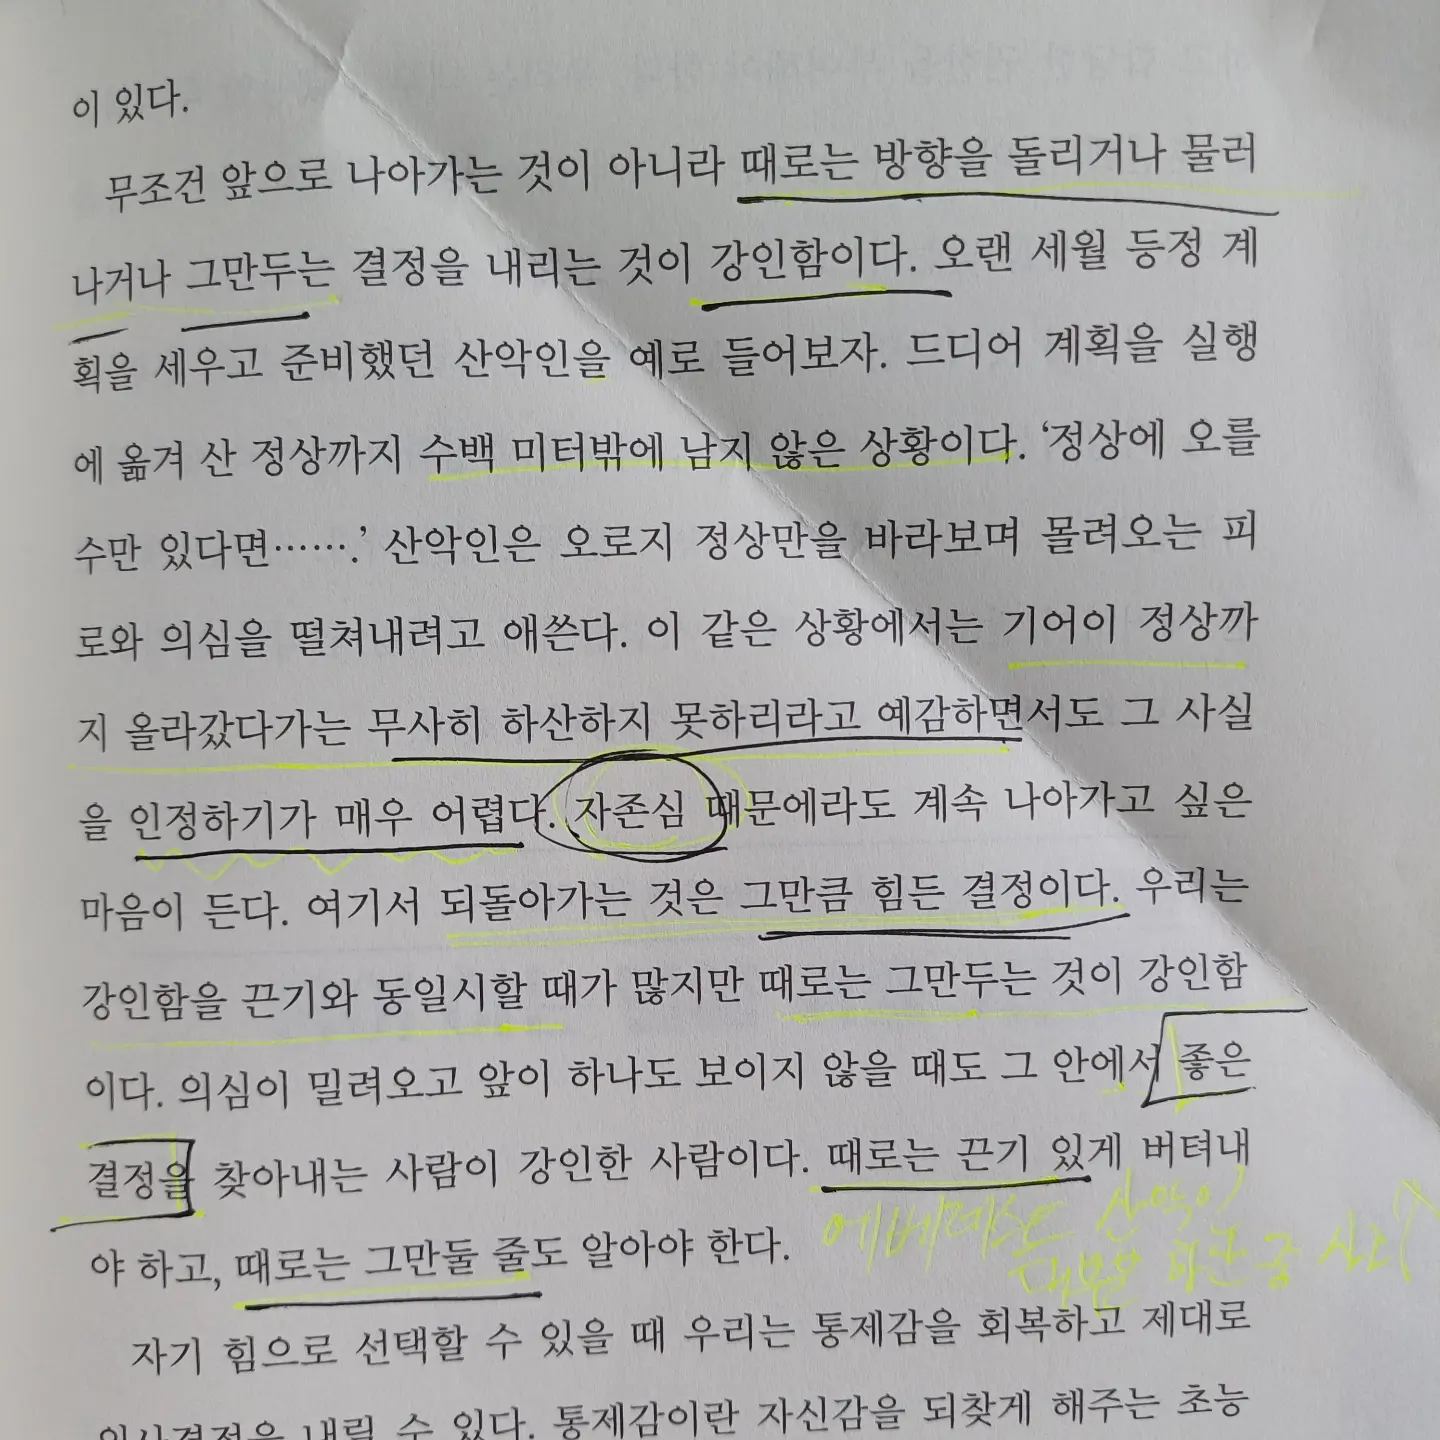 이 있다.
무조건 앞으로 나아가는 것이 아니라 때로는 방향을 돌리거나 물러
나거나 그만두는 결정을 내리는 것이 강인함이다. 오랜 세월 등정 계
획을 세우고 준비했던 산악인을 예로 들어보자. 드디어 계획을 실행
에 옮겨 산 정상까지 수백 미터밖에 남지 않은 상황이다. ‘정상에 오를
수만 있다면…….’ 산악인은 오로지 정상만을 바라보며 몰려오는 피
로와 의심을 떨쳐내려고 애쓴다. 이 같은 상황에서는 기어이 정상까
지 올라갔다가는 무사히 하산하지 못하리라고 예감하면서도 그 사실
을 인정하기가 매우 어렵다. 자존심 때문에라도 계속 나아가고 싶은
마음이 든다. 여기서 되돌아가는 것은 그만큼 힘든 결정이다. 우리는
강인함을 끈기와 동일시할 때가 많지만 때로는 그만두는 것이 강인함
이다. 의심이 밀려오고 앞이 하나도 보이지 않을 때도 그 안에서 좋은
결정을 찾아내는 사람이 강인한 사람이다. 때로는 끈기 있게 버텨내
야 하고, 때로는 그만둘 줄도 알아야 한다.
에베레스트 산악인
자기 힘으로 선택할 수 있을 때 우리는 통제감을 회복하고 제대로
의사결정을 내릴 수 있다. 통제감이란 자신감을 되찾게 해주는 초능